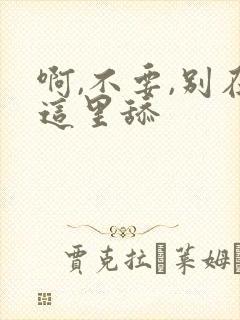 啊,不要,别在
這里舔
賈克拉 莱姆